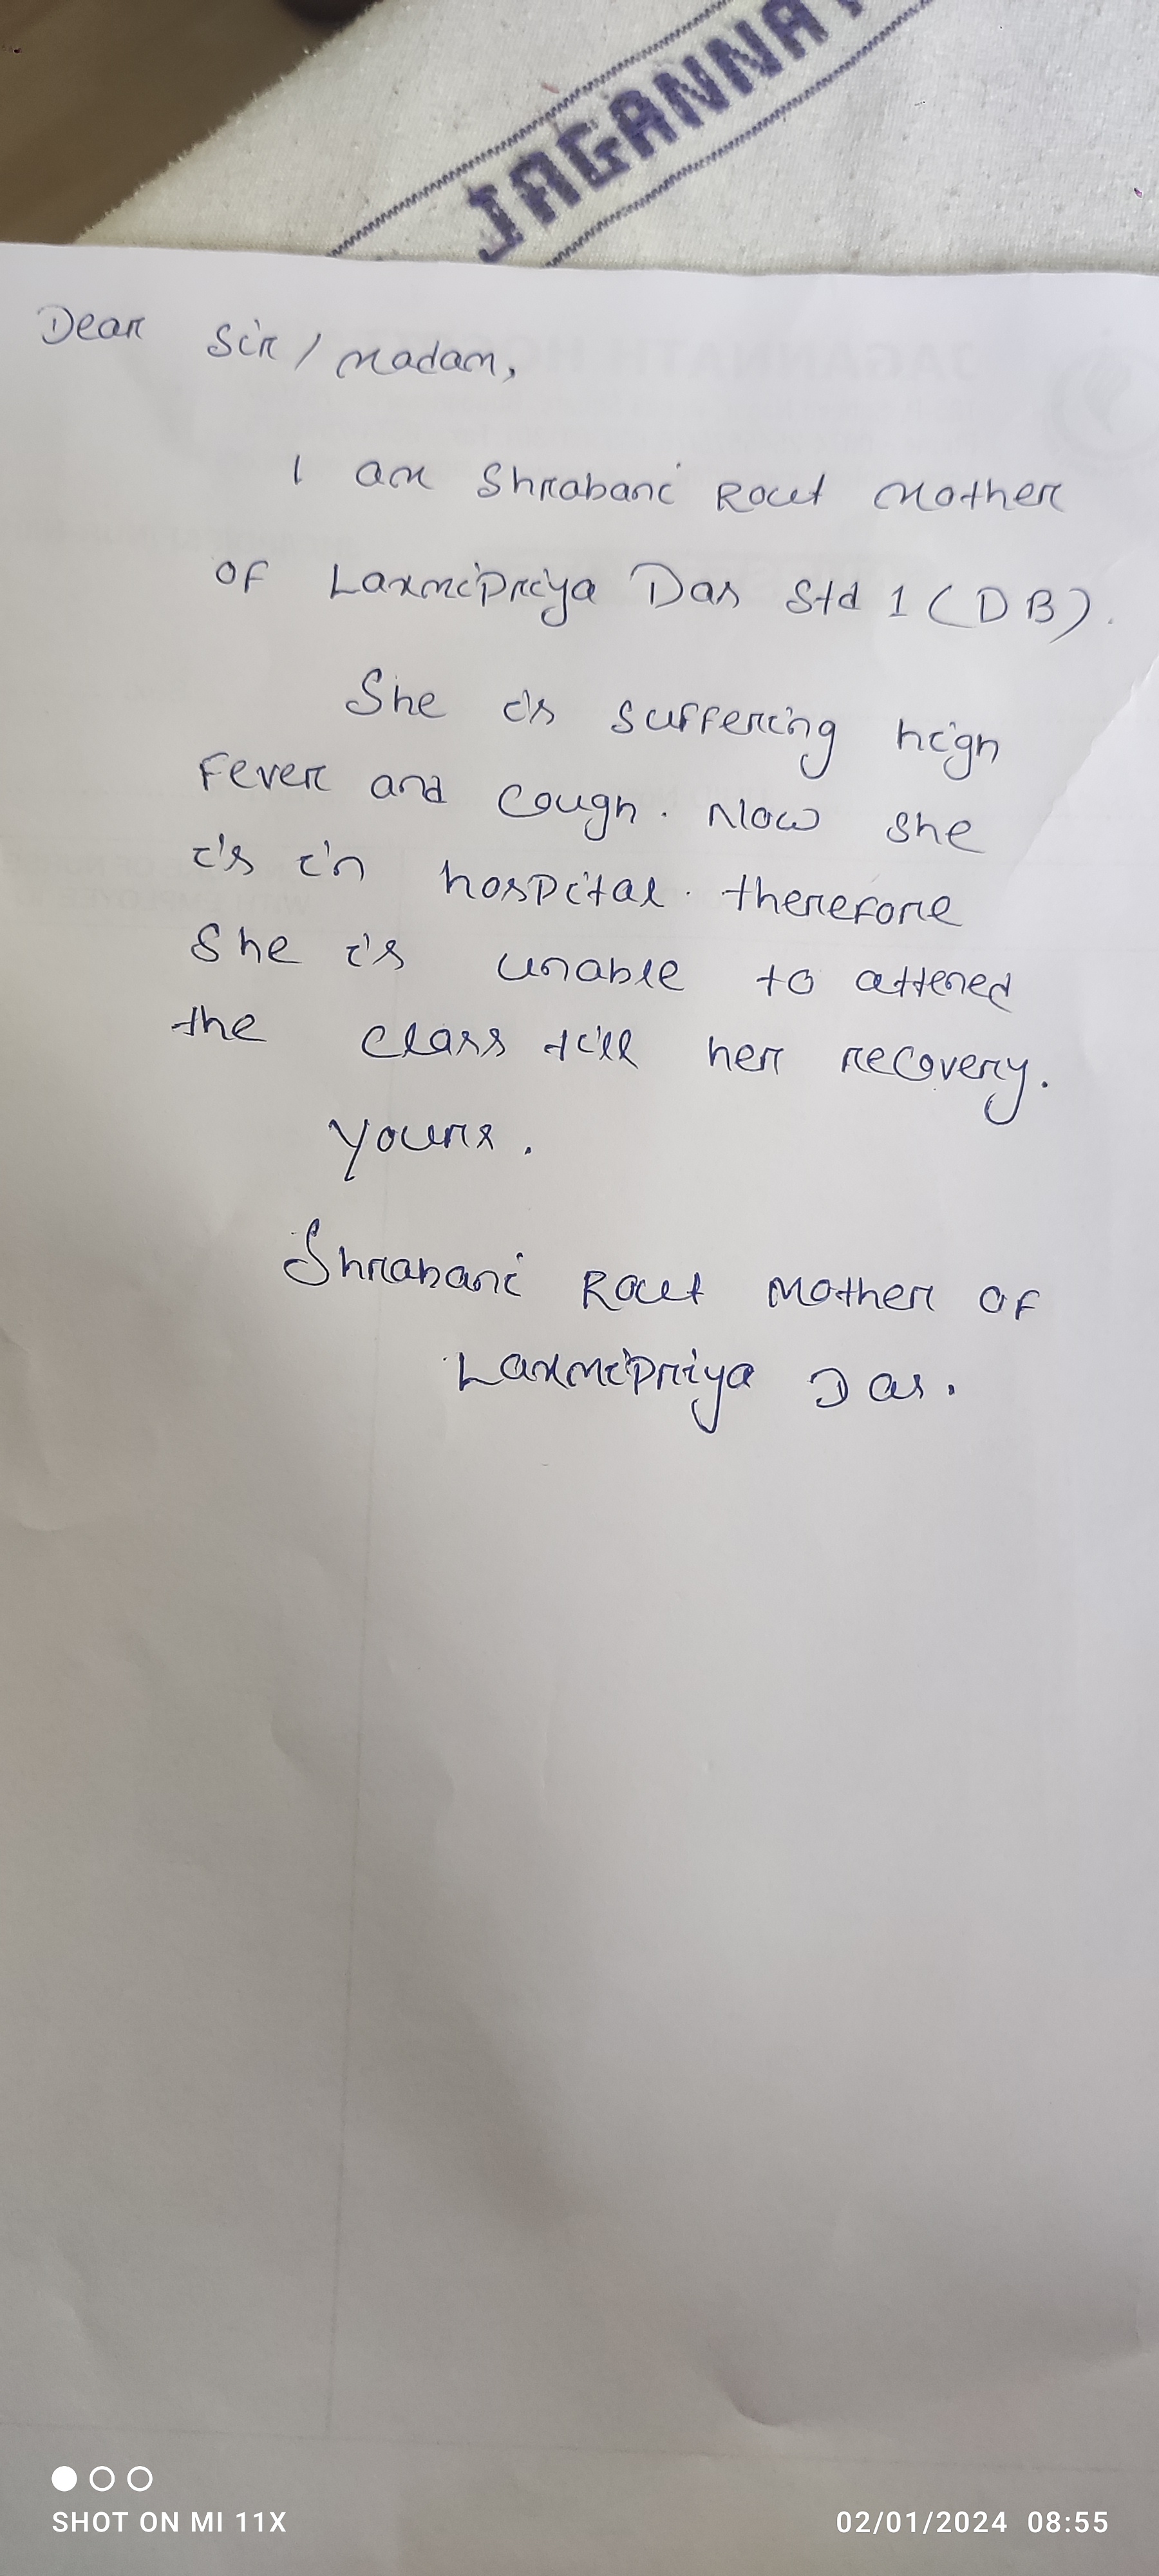 JAGANNAT
Dear Sir / Madam,
I am Shrabani Rout Mother
of Laxmipriya Das Std 1 (DB).
She is suffering high
Fever and Cough. Now she
is in hospital. therefore
She is unable to attened
the class till her recovery.
Yours.
Shrabani Rout Mother of
Laxmipriya Das.
SHOT ON MI 11X
02/01/2024 08:55